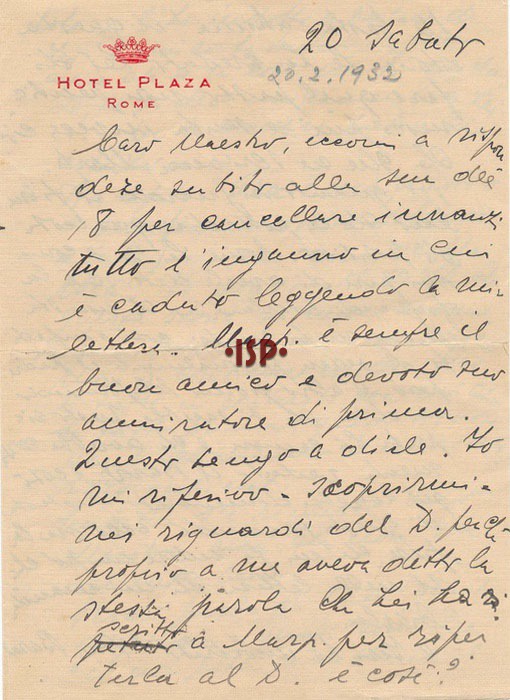 20 Sabato
20.2.1932
HOTEL PLAZA
ROME
Caro Maestro, eccomi a rispon
dere subito alla sua del
18 per cancellare innanzi
tutto l'inganno in cui
è caduto leggendo la mia
lettera. è sempre il
·ISP·
buon amico e devoto suo
ammiratore di prima.
Questo tengo a dirle. Io
mi riferivo - scoprirmi -
nei riguardi del D. perchè
proprio a me aveva detto la
stessa parola che Lei ha
scritto
a Marp. per riper
terla al D. è così?